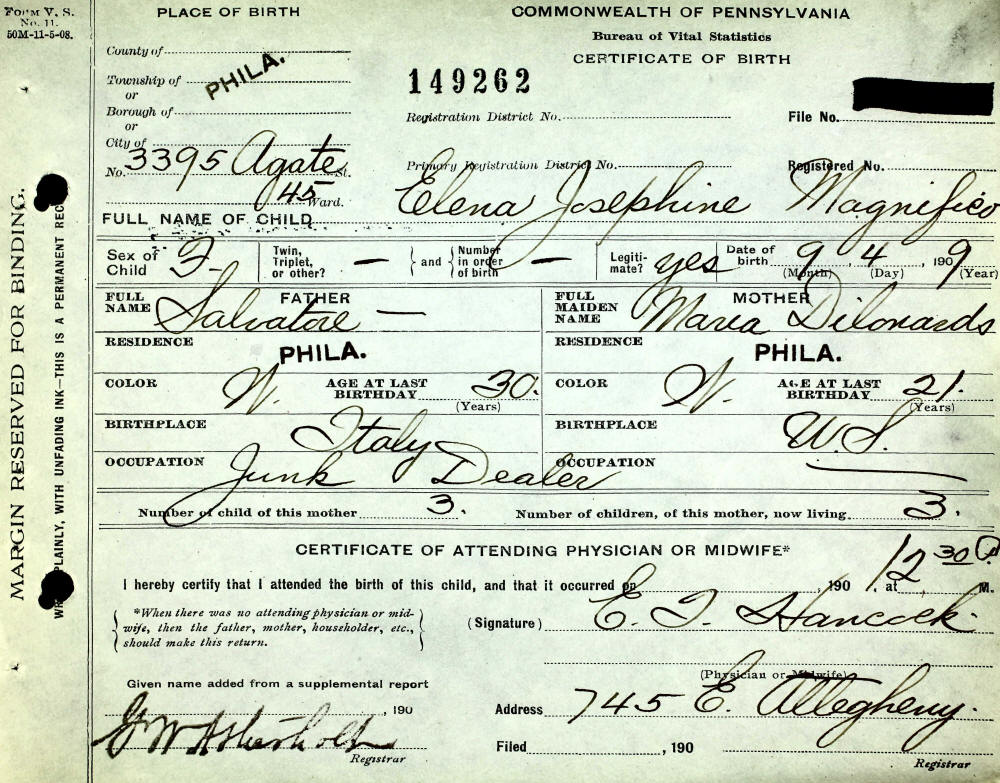 Form V. S.
No. 11.
50M-11-5-08.
MARGIN RESERVED FOR BINDING.
PLAINLY, WITH UNFADING INK—THIS IS A PERMANENT REC
PLACE OF BIRTH
County of
Township of PHILA.
or
Borough of
or
City of
No. 3395 Agate St.
45 Ward.
COMMONWEALTH OF PENNSYLVANIA
Bureau of Vital Statistics
CERTIFICATE OF BIRTH
149262
Registration District No.
File No.
Primary Registration District No.
Registered No.
FULL NAME OF CHILD Elena Josephine Magnifico
Sex of Child F
Twin, Triplet, or other? —
and Number in order of birth —
Legiti-mate? yes
Date of birth 9 4, 1909
(Month) (Day) (Year)
FATHER
FULL NAME Salvatore —
RESIDENCE
PHILA.
COLOR W. AGE AT LAST BIRTHDAY 30.
(Years)
BIRTHPLACE Italy
OCCUPATION Junk Dealer
MOTHER
FULL MAIDEN NAME Maria Dilonards
RESIDENCE
PHILA.
COLOR W. AGE AT LAST BIRTHDAY 21.
(Years)
BIRTHPLACE U.S.
OCCUPATION
Number of child of this mother 3. Number of children, of this mother, now living 3.
CERTIFICATE OF ATTENDING PHYSICIAN OR MIDWIFE*
I hereby certify that I attended the birth of this child, and that it occurred on , 190 , at 12 30 P M.
*When there was no attending physician or mid-
wife, then the father, mother, householder, etc.,
should make this return.
(Signature) E. T. Hancock.
(Physician or Midwife)
Given name added from a supplemental report
, 190
Registrar
Address 745 E. Allegheny.
Filed , 190
Registrar